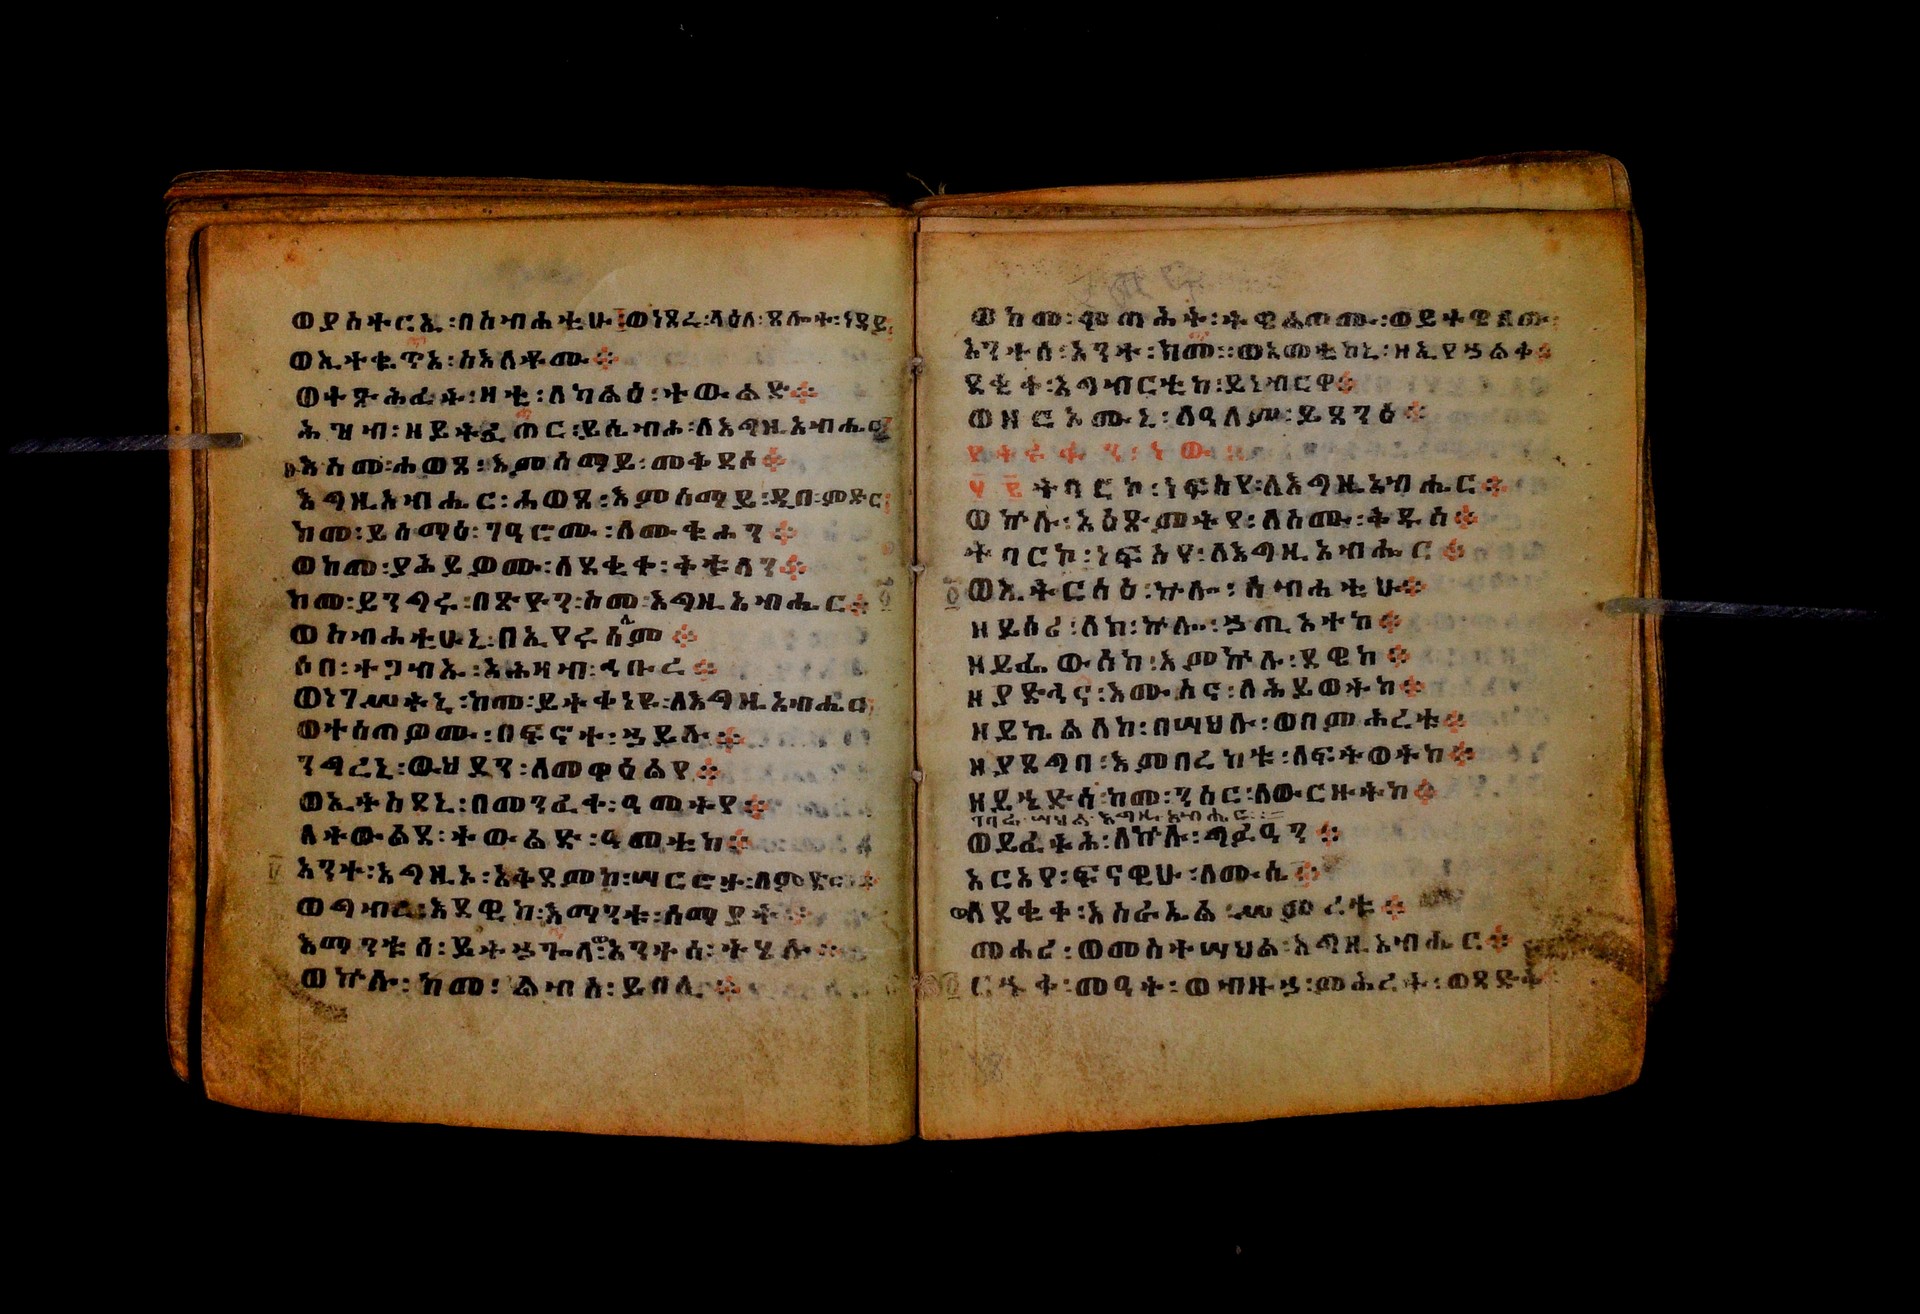 ወያስተርኢ፡በስብሐቲሁ፡ወነጸረ፡ላዕለ፡ጸሎተ፡ነዳይ
ወኢተቈጥአ፡ስእለቶሙ።
ወተጽሕፈት፡ዛቲ፡ለካልዕ፡ተውልድ።
ሕዝብ፡ዘይትፈጠር፡ይሴብሖ፡ለእግዚአብሔር
እስመ፡ሐወጸ፡እምሰማይ፡መቅደሱ።
እግዚአብሔር፡ሐወጸ፡እምሰማይ፡ዲበ፡ምድር
ከመ፡ይስማዕ፡ገዓሮሙ፡ለሙቁሐን።
ወከመ፡ያሕይዎሙ፡ለደቂቀ፡ቅቱላን።
ከመ፡ይንግሩ፡በጽዮን፡ስመ፡እግዚአብሔር።
ወስብሐቲሁኒ፡በኢየሩሳሌም።
ሶበ፡ተጋብኡ፡አሕዛብ፡ኅቡረ።
ወነገሥትኒ፡ከመ፡ይትቀነዩ፡ለእግዚአብሔር
ወተሰጠዎሙ፡በፍኖተ፡ኃይሉ።
ንግረኒ፡ውሁደን፡ለመዋዕልየ።
ወኢትስደኒ፡በመንፈቀ፡ዓመትየ።
ለትውልደ፡ትውልድ፡ዓመቲከ።
አንተ፡እግዚኦ፡አቅደምከ፡ሣርሮታ፡ለምድር።
ወግብረ፡እደዊከ፡እማንቱ፡ሰማያት።
እማንቱሰ፡ይትኃጐላ፡አንተሰ፡ትሄሉ።
ወኵሉ፡ከመ፡ልብስ፡ይበሊ።
ወከመ፡ሞጣሕት፡ትዌልጦሙ፡ወይትዌለጡ
አንተሰ፡አንተ፡ከመ፡ወአመቲከኒ፡ዘኢየኃልቅ
ደቂቀ፡አግብርቲከ፡ይነብርዋ።
ወዘርኦሙኒ፡ለዓለም፡ይጸንዕ።
ትባርኮ፡ነፍስየ፡ለእግዚአብሔር።
ወኵሉ፡አዕጽምትየ፡ለስሙ፡ቅዱስ።
ትባርኮ፡ነፍስየ፡ለእግዚአብሔር።
ወኢትርሳዕ፡ኵሎ፡ስብሐቲሁ።
ዘይሰሪ፡ለከ፡ኵሎ፡ኃጢአተከ።
ዘይፌውሰከ፡እምኵሉ፡ደዌከ።
ዘያድኅና፡እሙስና፡ለሕይወትከ።
ዘይኬልለከ፡በሣህሉ፡ወበምሕረቱ።
ዘያጸግባ፡እምበረከቱ፡ለፍትወትከ።
ዘይሔድሳ፡ከመ፡ንስር፡ለውርዙትከ።
ገባሬ፡ሣህል፡እግዚአብሔር፡
ወይፈትሕ፡ለኵሉ፡ግፉዓን።
አርአየ፡ፍናዊሁ፡ለሙሴ።
ወለደቂቀ፡እስራኤል፡ሥምረቱ።
መሐሪ፡ወመስተሣህል፡እግዚአብሔር።
ርኁቀ፡መዓት፡ወብዙኃ፡ምሕረት፡ወጻድቅ